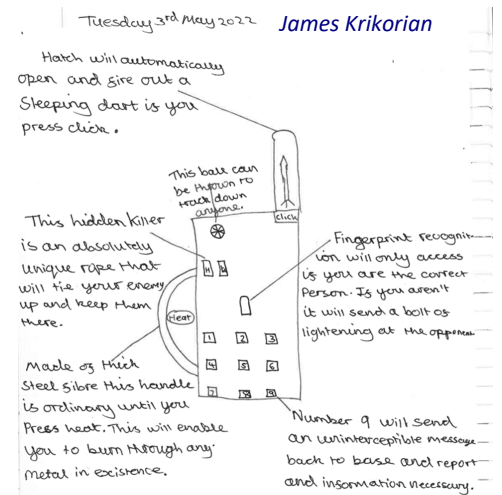 Tuesday 3rd May 2022
James Krikorian
Hatch will automatically
open and fire out a
Sleeping dart if you
press click.
This ball can
be thrown to
track down
anyone.
click
This hidden killer
is an absolutely
unique rope that
will tie your enemy
up and keep them
there.
H
Fingerprint recognit-
ion will only access
if you are the correct
Person. If you aren't
it will send a bolt of
lightening at the opponent
Heat
1 2 3
4 5 6
7 8 9
Made of thick
Steel fibre this handle
is ordinary until you
Press heat. This will enable
you to burn through any
metal in existence.
Number 9 will send
an uninterceptible message
back to base and report
and information necessary.